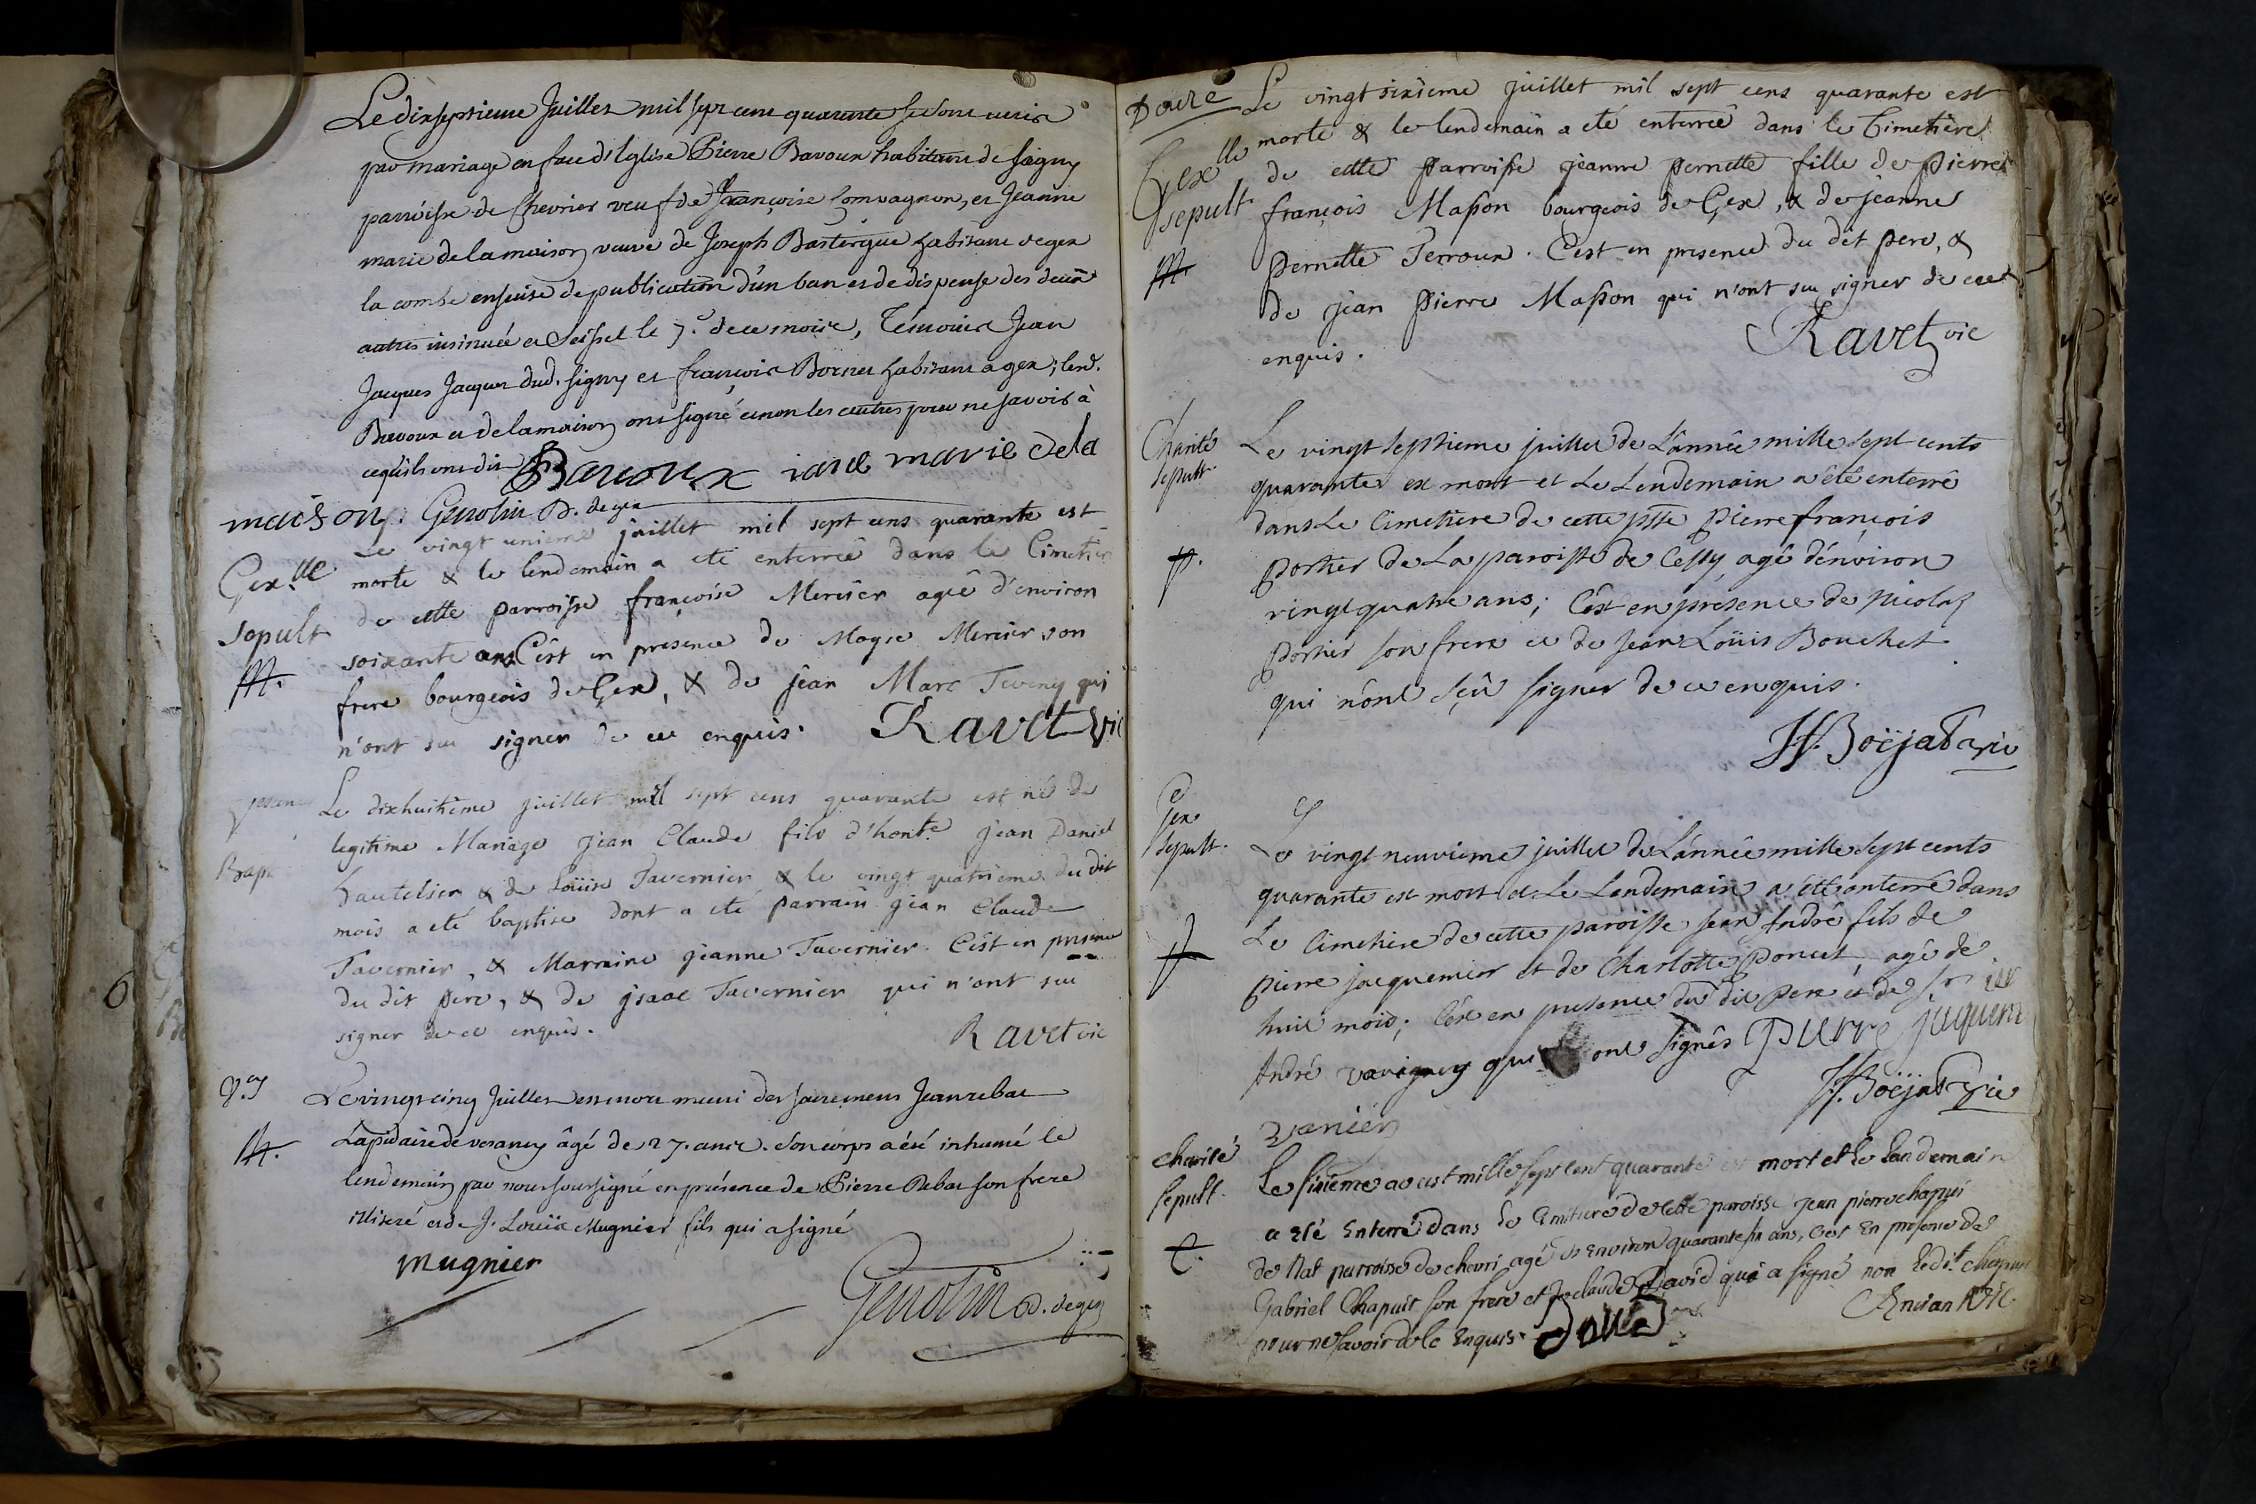 Le dixseptieme Juillet mil sept cent quarante se sont unis
par mariage en face d'Eglise Pierre Bavoux habitant de Signy
parroisse de Chevrier veuf de Françoise Convagnon, et Jeanne
marie delamaison veuve de Joseph habitant de gex
la combe ensuise de publication d'un ban et de dispense des deux
autres insinuée a Seissel le 7.e de ce mois, Témoins Jean
Jacques Jacquet dud. Signy et françois habitant a gex; led.
Bavoux et delamaison ont signé et non les autres pour ne savoir à
ce qu'ils ont dit Bavoux iane marie dela
maison. Genolin Ø. de gex
Gex lle
Le vingt unieme juillet mil sept cens quarante est
morte & le lendemain a eté enterreé dans le Cimetiere
sepult
de cette parroisse françoise Mercier agée d'environ
soixante ans C'est en presence de Moyse Mercier son
frere bourgeois de Gex, & de jean Marc qui
n'ont su signer de ce enquis. Ravet vic
Bapt
Le dixhuitieme juillet mil sept cens quarante est né de
legitime Mariage jean Claude fils d'honte. jean Daniel
hautelier & de Loüise Tavernier & le vingt quatrieme du dit
mois a eté baptise dont a eté parrain jean Claude
Tavernier, & Marraine jeanne Tavernier. C'est en presence
du dit pere, & de jsaac Tavernier qui n'ont su
signer de ce enquis.
Ravet vic
V.y
Le vingt cinq Juillet est mort muni des sacremens Jean rebat
Lapidaire de vesancy âgé de 27. ans. Son corps a été inhumé le
lendemain par nous soussigné en présence de Pierre Rebat son frere
illiteré et de J. Louïs Mugnier fils qui a signé
mugnier
Genolin Ø. de gex
Gex lle
sepult
Le vingt sixieme juillet mil sept cens quarante est
morte & le lendemain a eté enterreé dans le Cimetiere
de cette parroisse jeanne pernette fille de pierre
françois Masson bourgeois de Gex, & de jeanne
pernette Perroux. C'est en presence du dit pere, &
de jean pierre Masson qui n'ont su signer de ce
enquis.
Ravet vic
Charité
sepult.
Le vingt septieme juillet de L'année mille sept cents
quarante est mort et Le Lendemain a été enterré
dans Le Cimetiere de cette psse pierre françois
portier de La paroisse de Cessy agé d'énviron
vingt quatre ans; C'est en présence de nicolas
portier son frere et de jean Loüis Bouchet
qui n'ont sçu signer de ce enquis.
Gex
sepult.
Le vingt neuvieme juillet de L'année mille sept cents
quarante est mort et Le Lendemain a été enterré dans
Le Cimetiere de cette paroisse jean André fils de
pierre jacquemier et de Charlotte poncet, agé de
huit mois; C'est en presence du dit pere et de
André qui ont signés pierre
Charité
sepult.
Le sixieme aoust mille sept cent quarante est mort et le Landemain
a eté Enterré dans le Cimitiere de cette paroisse jean pierre chapui
de Nat parroisse de chevri agé d'Environ quarante six ans, C'est En presence de
Gabriel Chapuit son frere et jn claude David qui a signé non Ledit chapui
pour ne savoir de ce Enquis. David
Ancian vic.